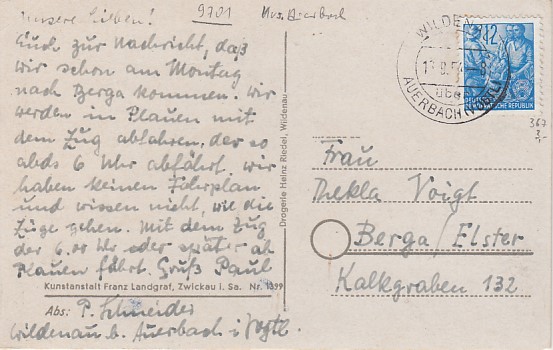 unsere Lieben!
9701 Krs. Auerbach
Euch zur Nachricht, daß
wir schon am Montag
nach Berga kommen. Wir
werden in Plauen mit
dem Zug abfahren, der so
abds 6 Uhr abfährt. wir
haben keinen Fahrplan
und wissen nicht, wie die
Züge gehen. Mit dem Zug
der 6.00 Uhr oder später ab
Plauen fährt. Gruß Paul
Kunstanstalt Franz Landgraf, Zwickau i. Sa. Nr. 1399
Abs: P. Schneider
Wildenau b. Auerbach i. Vogtl.
Drogerie Heinz Riedel, Wildenau
WILDENAU
über
AUERBACH (VOGTL)
12
DEUTSCHE DEMOKRATISCHE REPUBLIK
367
3,-
Frau
Thekla Voigt
Berga/Elster
Kalkgraben 132